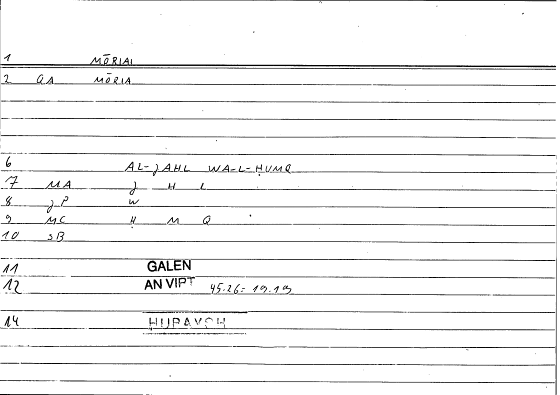 1 MŌRIAI
2 GA MŌRIA
6 AL-JAHL WA-L-ḤUMQ
7 MA J H L
8 JP W
9 MC Ḥ M Q
10 SB
11 GALEN
12 AN VIPT 45.26 = 19.19
14 HUPAVCH